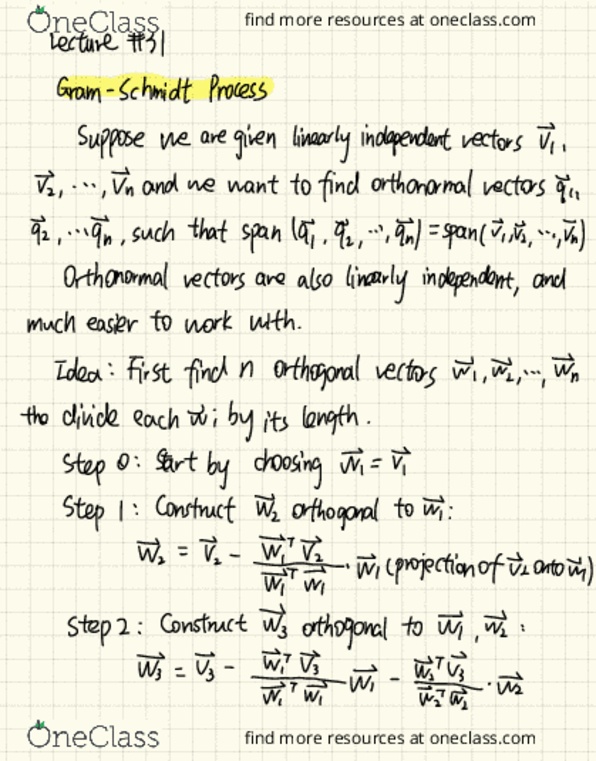 OneClass find more resources at oneclass.com
Lecture #31
Gram-Schmidt Process
Suppose we are given linearly independent vectors v⃗₁,
v⃗₂, ⋯, v⃗n and we want to find orthonormal vectors q⃗₁,
q⃗₂, ⋯q⃗n, such that span (q⃗₁, q⃗₂, ⋯, q⃗n) = span(v⃗₁, v⃗₂, ⋯, v⃗n)
Orthonormal vectors are also linearly independent, and
much easier to work with.
Idea: First find n orthogonal vectors w⃗₁, w⃗₂, ⋯, w⃗n
the divide each w⃗i by its length.
Step 0: Start by choosing w⃗₁ = v⃗₁
Step 1: Construct w⃗₂ orthogonal to w⃗₁:
w⃗₂ = v⃗₂ - (w⃗₁ᵀ v⃗₂ / w⃗₁ᵀ w⃗₁) · w⃗₁ (projection of v⃗₂ onto w⃗₁)
Step 2: Construct w⃗₃ orthogonal to w⃗₁, w⃗₂:
w⃗₃ = v⃗₃ - (w⃗₁ᵀ v⃗₃ / w⃗₁ᵀ w⃗₁) w⃗₁ - (w⃗₂ᵀ v⃗₃ / w⃗₂ᵀ w⃗₂) · w⃗₂
OneClass find more resources at oneclass.com